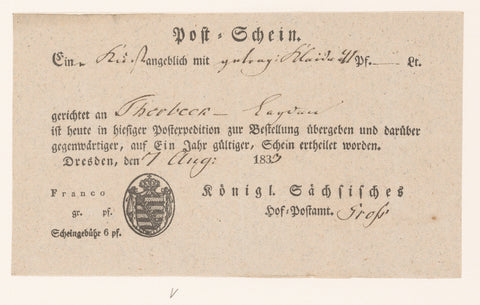 Post-Schein.
Ein Kist angeblich mit getrag: Kleider 41 Pf. Lt.
gerichtet an Thorbeck
ist heute in hiesiger Postexpedition zur Bestellung übergeben und darüber
gegenwärtiger, auf Ein Jahr gültiger, Schein ertheilet worden.
Dresden, den 7 Aug: 1833
Franco
gr. pf.
Scheingebühr 6 pf.
Königl. Sächsisches
Hof-Postamt. Gross
v